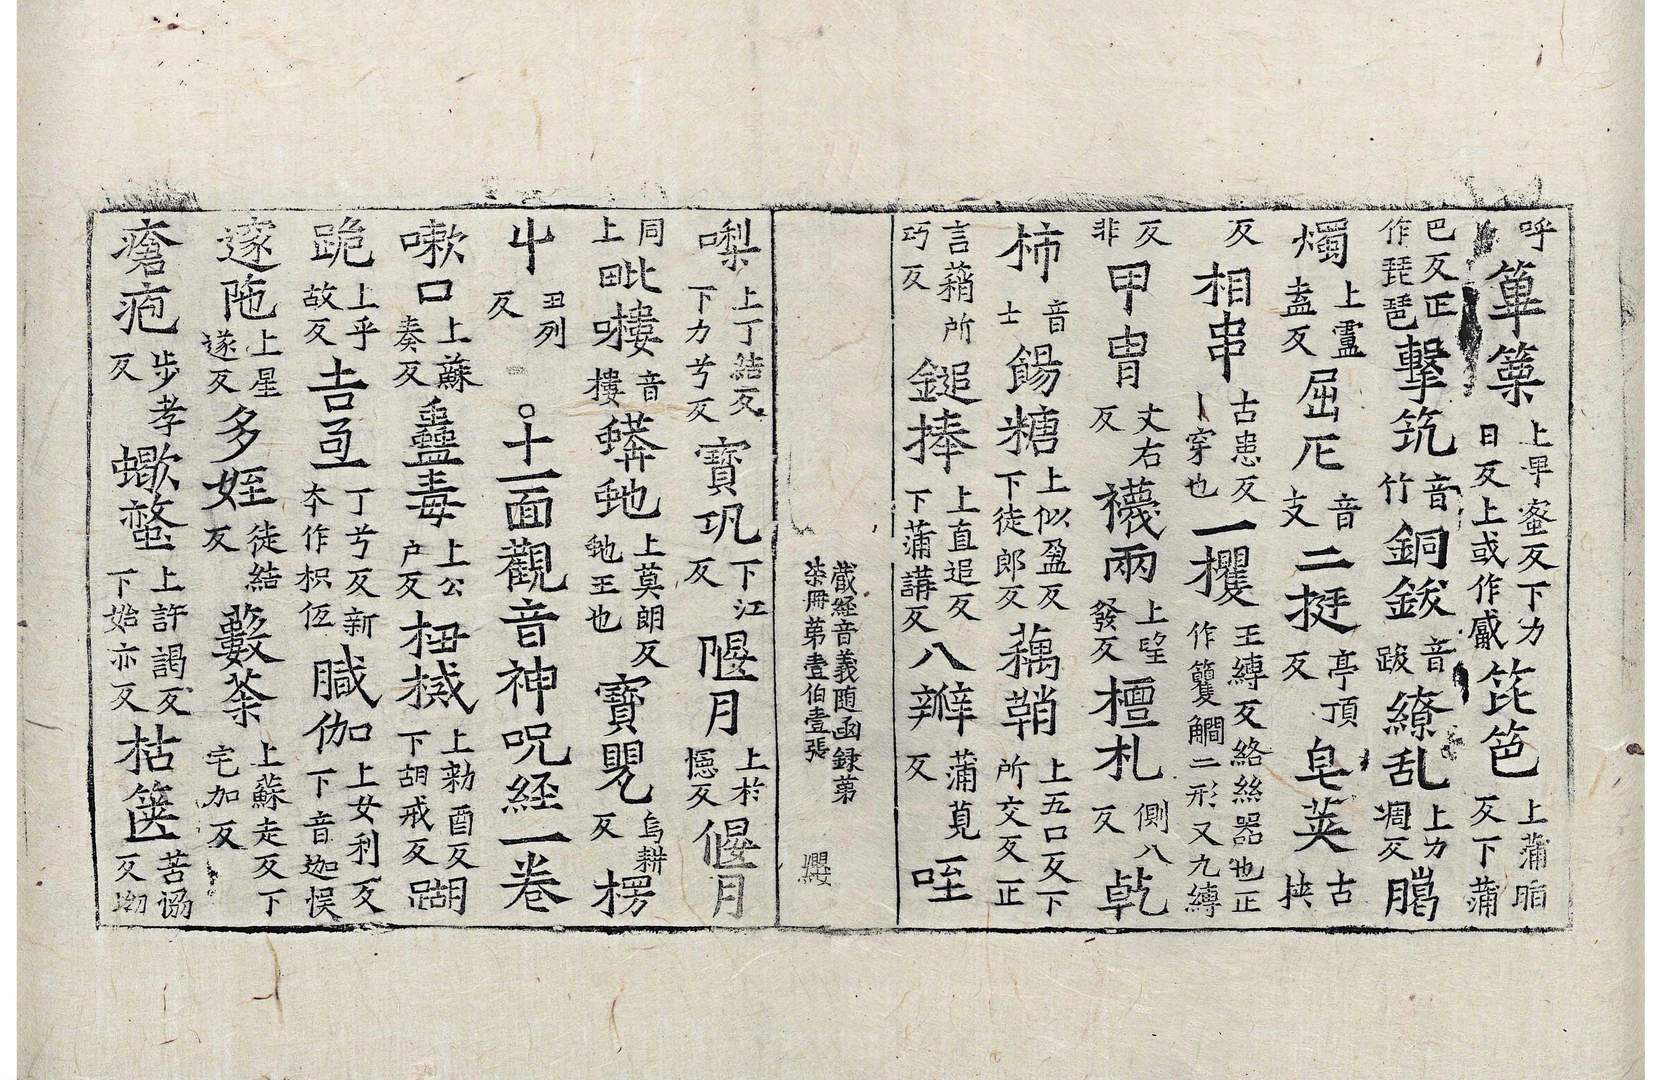 呼篳篥上卑蜜反下力日反上或作觱笓笆上蒲脂反下蒲
巴反正作琵琶擊筑音竹銅鈸音跋繚乱上力凋反臈
燭上盧盍反屈戹音支二挺亭頂反皁莢古挾
反相串古患反丨穿也一攫王縛反絡絲器也正作籰䦆二形又九縛
反非甲胄丈右反襪兩上望發反檀札側八反乹
柿音士餳糖上似盈反下徒郎反藕鞘上五口反下所交反正
言䈰所巧反鎚捧上直追反下蒲講反八瓣蒲莧反咥
藏經音義随函録苐柒冊苐壹伯壹張 纓
㗚上丁結反下力兮反寶㺬下江反隁月上於幰反偃月
同上毗𡄣音樓蟒虵上莫朗反虵王也寶甖烏耕反楞
屮丑列反 十一面觀音神呪経一卷
嗽口上蘇奏反蠱毒上公户反杻械上勑酉反下胡戒反䠒
跪上乎故反吉𠄏丁兮反新夲作枳仾膱伽上女利反下音迦悮
邃陁上星遂反多姪徒結反藪荼上蘇走反下宅加反
瘡疱步孝反蠍螫上許謁反下始亦反枯篋苦協反坳